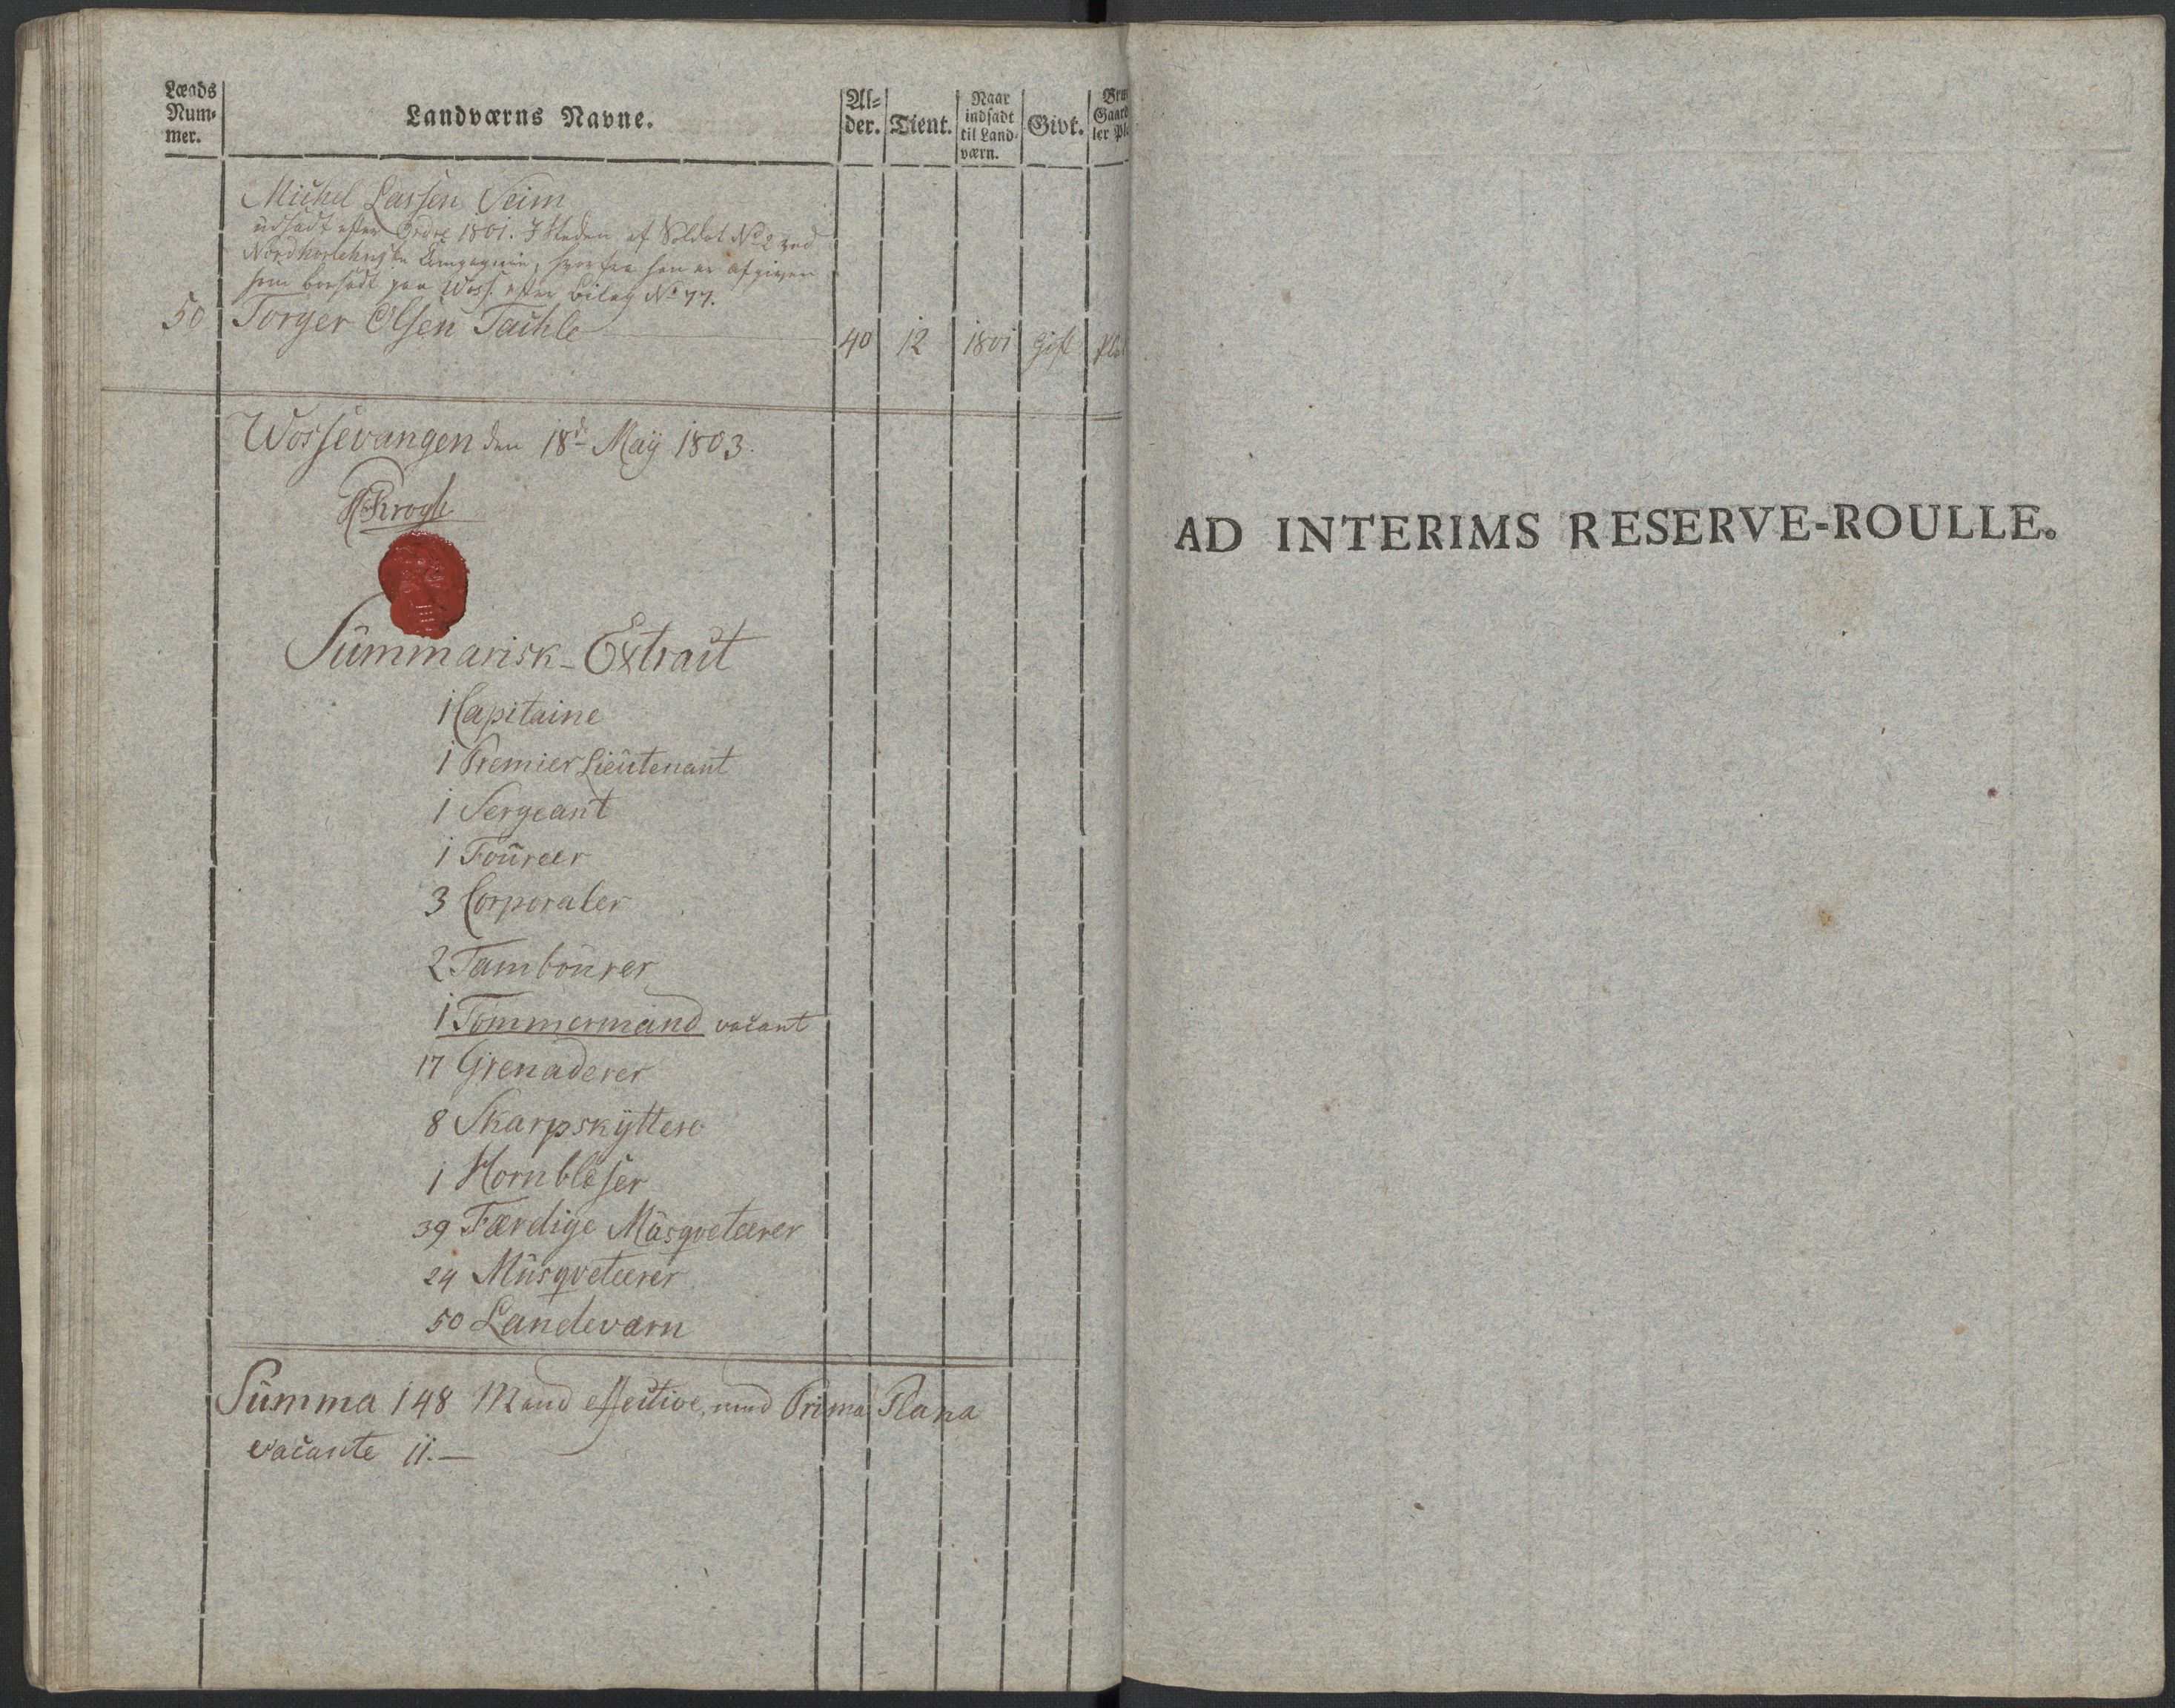 Lœds
Num-
mer.
Landværns Navne.
Al-
der.
Tient.
Naar
indsadt
til Land-
værn.
Givt.
Gaard
ler Pl
Michel Lassen Seim
udsadt efter Ordre 1801. I steden af Soldat No 2 ved
Nordhorlehnske Compagnie, hvorfra han er afgiven
som bortsadt paa Woss. efter Bilag No 77.
50 Torger Olsen Tachle 40 12 1801 gift Pla
Wossevangen den 18de Maÿ 1803.
Krogh
Summarisk-Extract
1 Capitaine
1 Premier Lieutenant
1 Sergeant
1 Foureer
3 Corporaler
2 Tambourer
1 Tømmermand vacant
17 Grenaderer
8 Skarpskÿttere
1 Hornblæser
39 Færdige Musqveteerer
24 Musqveteerer
50 Landeværn
Summa 148 Mand effective, med Prima Plana
vacante 11.—
AD INTERIMS RESERVE-ROULLE.